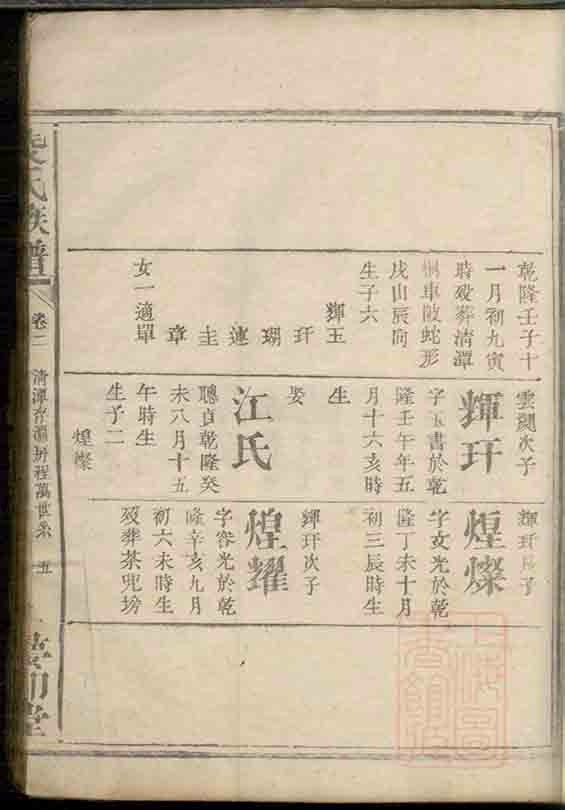 乾隆壬子十
一月初九寅
時歿葬清潭
桐車畈蛇形
戌山辰向
生子六
輝玉
玕
瑚
璉
圭
章
女一適單
雲閣次子
輝玕
字玉書於乾
隆壬午年五
月十六亥時
生
娶
江氏
聰貞乾隆癸
未八月十五
午時生
生子二
煌燦
輝玕長子
煌燦
字文光於乾
隆丁未十月
初三辰時生
輝玕次子
煌耀
字容光於乾
隆辛亥九月
初六未時生
歿葬茶兜塝
氏族譜
卷二
清潭存濡房程萬世系
五
堂